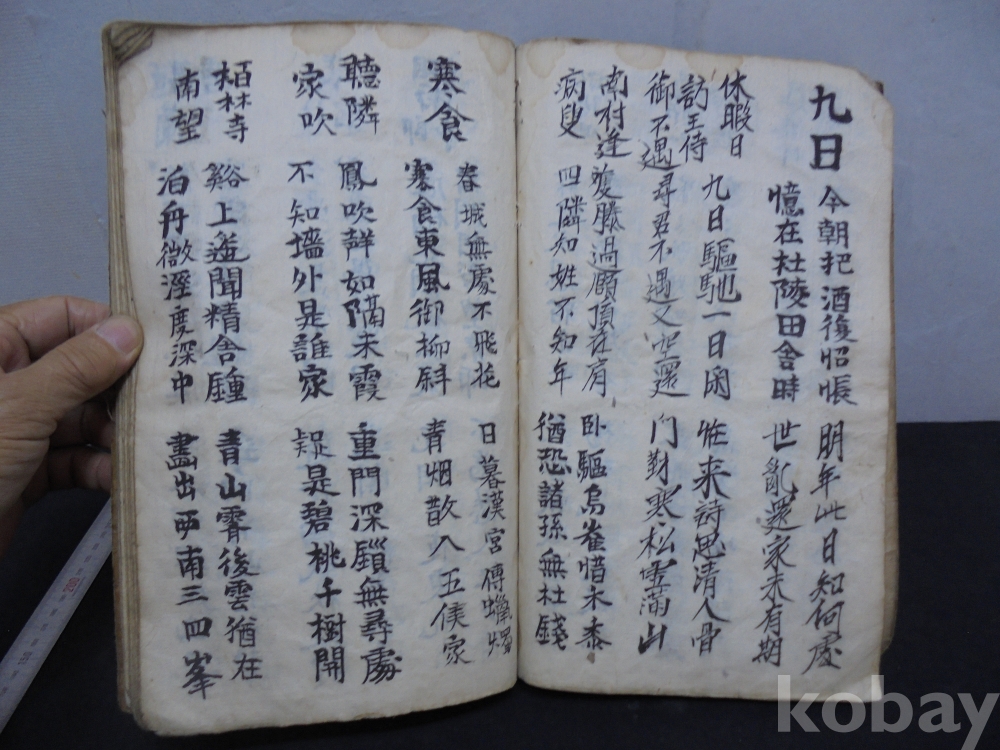 九日
今朝把酒復昭悵 明年此日知何處
憶在杜陵田舍時 世亂還家未有期
休暇日
訪王侍
御不遇
九日驅馳一日閑 怪来詩思清人骨
尋君不遇又空還 門對寒松雪滿山
南村逢
病叟
雙膝過頤頂在肩 卧驅鳥雀惜禾黍
四隣知姓不知年 猶恐諸孫無社錢
寒食
春城無處不飛花 日暮漢宮傳蠟燭
寒食東風御柳斜 青烟散入五侯家
聽隣
家吹
鳳吹聲如隔未霞 重門深鎖無尋處
不知墻外是誰家 疑是碧桃千樹開
栢林寺
南望
谿上遙聞精舍鍾 青山霽後雲猶在
泊舟微徑度深中 畵出西南三四峯
kobay